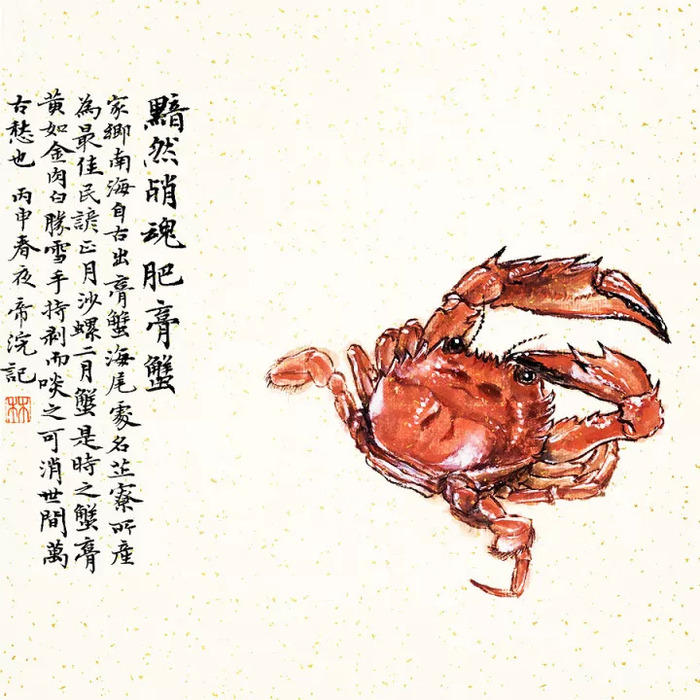 黯然銷魂肥膏蟹
家鄉南海自古出膏蟹海尾處名芷寮所產
為最佳民諺正月沙螺二月蟹是時之蟹膏
黃如金肉白勝雪手持剥而啖之可消世間萬
古愁也 丙申春夜帝浣記
林